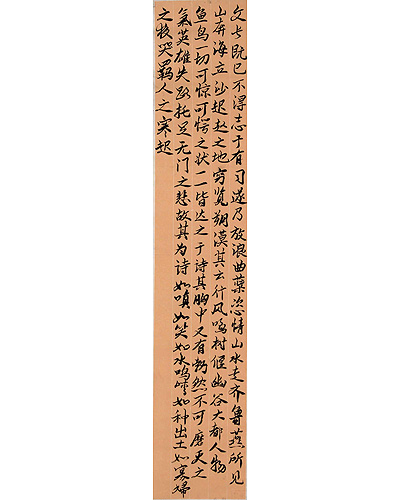 文长既已不得志于有司遂乃放浪曲蘖恣情山水走齐鲁燕所见
山奔海立沙起赵之地穷览朔漠其云行风鸣树偃幽谷大都人物
鱼鸟一切可惊可愕之状一一皆达之于诗其胸中又有勃然不可磨灭之
氣英雄失路托足无门之悲故其为诗如嗔如笑如水鸣峡如种出土如寡婦
之夜哭羁人之寒起